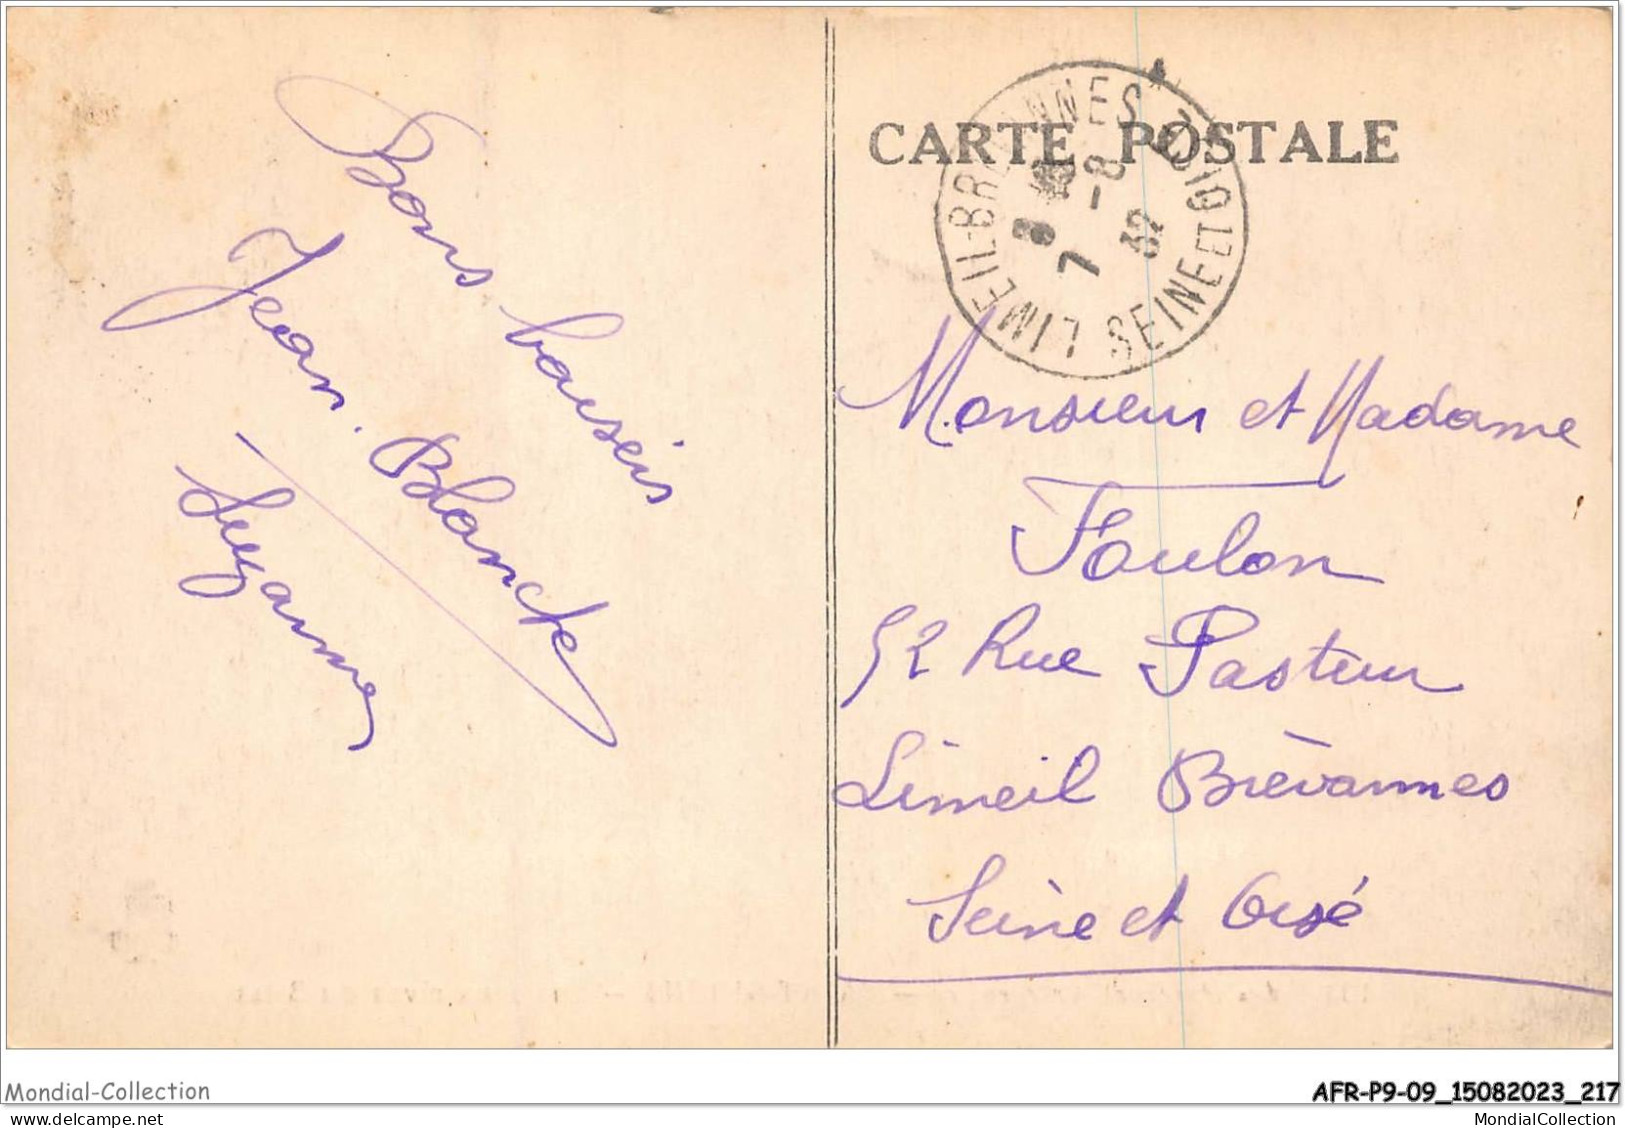 CARTE POSTALE
LIMEIL-BRÉVANNES SEINE ET OISE
7 -8
32
Bons baisers
Jean. Blanche
Suzanne
Monsieur et Madame
Foulon
52 Rue Pasteur
Limeil Brévannes
Seine et Oise
Mondial-Collection
AFR-P9-09_15082023_217
MondialCollection